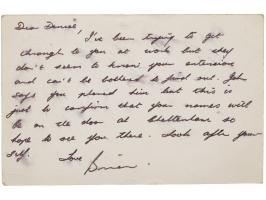 Dear Daniel,
I've been trying to get
through to you at work but they
don't seem to know your extension
and can't be bothered to find out. John
says you phoned him but this is
just to confirm that your names will
be on the door at Cheltenham so
hope to see you there. Look after your
self. Love